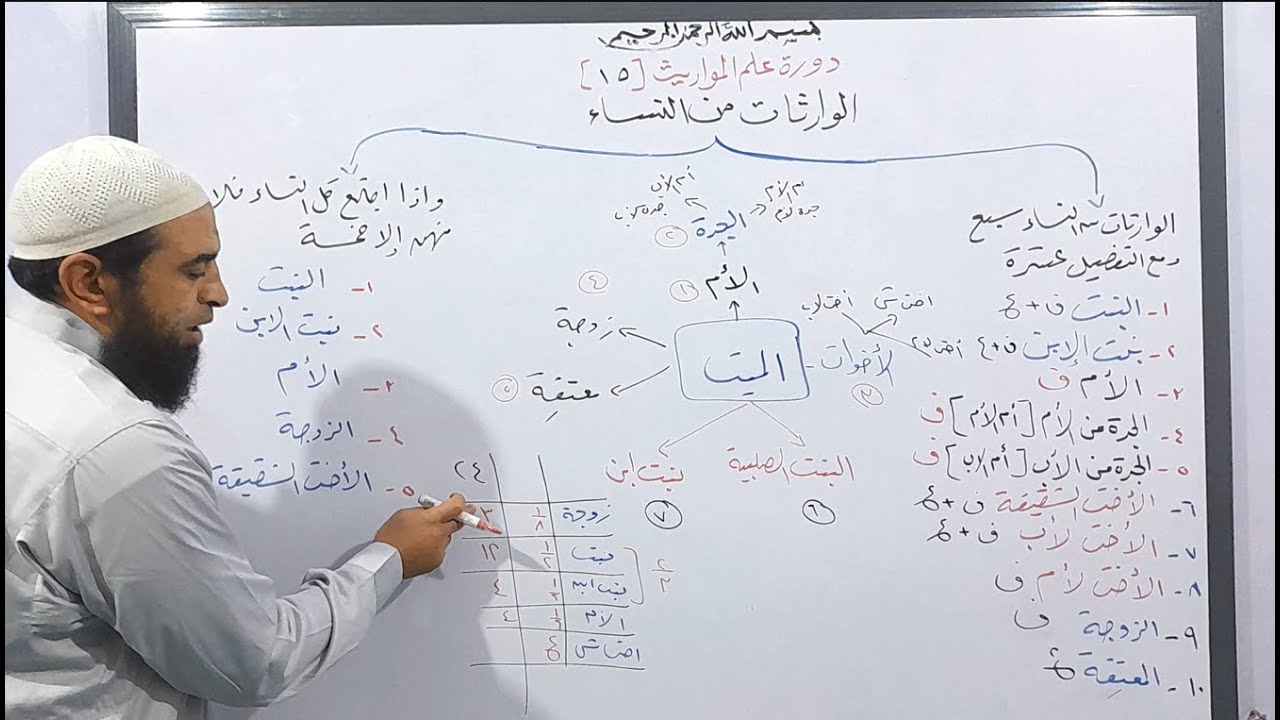 بسم الله الرحمن الرحيم
دورة علم المواريث [١٥]
الوارثات من النساء
الوارثات من النساء سبع
ومع التفصيل عشرة
١- البنت ف + ع
٢- بنت الإبن ف + ع
٣- الأم ف
٤- الجدة من الأم [أم الأم] ف
٥- الجدة من الأب [أم الأب] ف
٦- الأخت الشقيقة ف + ع
٧- الأخت لأب ف + ع
٨- الأخت لأم ف
٩- الزوجة ف
١٠- المعتقة ع
أم الأم
أم الأب
الجدة
٢
الأم
١
٤
زوجة
معتقة
٥
الميت
الأخوات
٣
اخت ش
اخت لاب
البنت الصلبية
٦
بنت ابن
٧
واذا اجتمع كل النساء فلا
منهن إلا خمسة
١- البنت
٢- بنت الابن
٣- الأم
٤- الزوجة
٥- الأخت الشقيقة
٢٤
زوجة ١/٨ ٣
بنت ١/٢ ١٢
بنت ابن ١/٦ ٤
٢/٣
الأم ١/٦ ٤
اخت ش ع